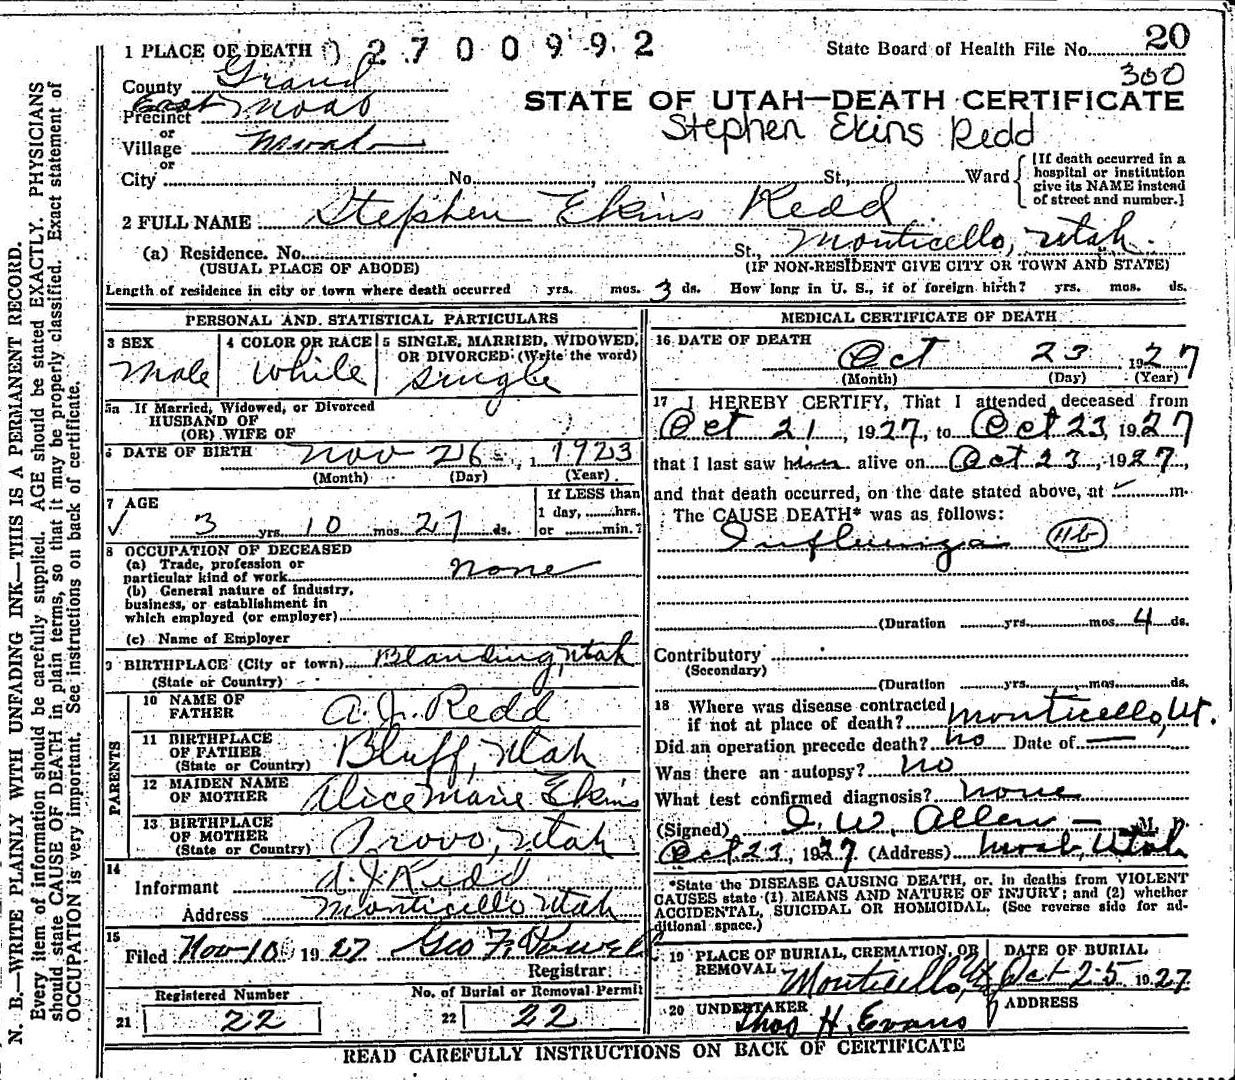 1 PLACE OF DEATH 02700992 State Board of Health File No. 20
300
County Grand
STATE OF UTAH—DEATH CERTIFICATE
East Moab
Precinct
Stephen Ekins Redd
or
Village Moab
or
City No. , St., Ward
[If death occurred in a hospital or institution give its NAME instead of street and number.]
2 FULL NAME Stephen Ekins Redd
(a) Residence. No. St., Monticello, Utah.
(USUAL PLACE OF ABODE) (IF NON-RESIDENT GIVE CITY OR TOWN AND STATE)
Length of residence in city or town where death occurred yrs. mos. 3 ds. How long in U. S., if of foreign birth? yrs. mos. ds.
PERSONAL AND STATISTICAL PARTICULARS
3 SEX 4 COLOR OR RACE 5 SINGLE, MARRIED, WIDOWED,
OR DIVORCED (Write the word)
Male White Single
5a If Married, Widowed, or Divorced
HUSBAND OF
(OR) WIFE OF
6 DATE OF BIRTH Nov 26, 1923
(Month) (Day) (Year)
7 AGE If LESS than
1 day, hrs.
✓ 3 yrs. 10 mos. 27 ds. or min.?
8 OCCUPATION OF DECEASED
(a) Trade, profession or
particular kind of work none
(b) General nature of industry,
business, or establishment in
which employed (or employer)
(c) Name of Employer
9 BIRTHPLACE (City or town) Blanding, Utah
(State or Country)
PARENTS
10 NAME OF
FATHER A. J. Redd
11 BIRTHPLACE
OF FATHER Bluff, Utah
(State or Country)
12 MAIDEN NAME
OF MOTHER Alice Marie Ekins
13 BIRTHPLACE
OF MOTHER Provo, Utah
(State or Country)
14
Informant A. J. Redd
Address Monticello Utah
15
Filed Nov 10 1927 Geo F. Powell
Registrar
Registered Number No. of Burial or Removal Permit
21 22 22 22
MEDICAL CERTIFICATE OF DEATH
16 DATE OF DEATH
Oct 23 1927
(Month) (Day) (Year)
17 I HEREBY CERTIFY, That I attended deceased from
Oct 21, 1927, to Oct 23, 1927
that I last saw him alive on Oct 23, 1927,
and that death occurred, on the date stated above, at ✓ m.
The CAUSE DEATH* was as follows:
Influenza 11b
(Duration yrs. mos. 4 ds.
Contributory
(Secondary)
(Duration yrs. mos. ds.
18 Where was disease contracted
if not at place of death? Monticello, Ut.
Did an operation precede death? no Date of —
Was there an autopsy? no
What test confirmed diagnosis? none
(Signed) I. W. Allen — M. D.
Oct 23, 1927 (Address) Moab, Utah
*State the DISEASE CAUSING DEATH, or, in deaths from VIOLENT
CAUSES state (1) MEANS AND NATURE OF INJURY; and (2) whether
ACCIDENTAL, SUICIDAL OR HOMICIDAL. (See reverse side for ad-
ditional space.)
19 PLACE OF BURIAL, CREMATION, OR DATE OF BURIAL
REMOVAL Monticello, Ut Oct 25 1927
20 UNDERTAKER ADDRESS
Thos H. Evans
READ CAREFULLY INSTRUCTIONS ON BACK OF CERTIFICATE
N. B.—WRITE PLAINLY WITH UNFADING INK—THIS IS A PERMANENT RECORD.
Every item of information should be carefully supplied. AGE should be stated EXACTLY. PHYSICIANS
should state CAUSE OF DEATH in plain terms, so that it may be properly classified. Exact statement of
OCCUPATION is very important. See instructions on back of certificate.